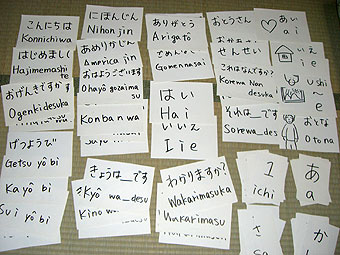 こんにちは
Konnichiwa
はじめまして
Hajimemashi
te
おげんきですか
Ogenkidesuka
げつようび
Getsu yôbi
Ka yôbi
Sui yôbi
にほんじん
Nihonjin
あめりかじん
America jin
おはようございます
Ohayô gozaima
su
Konbanwa
きょうは_です
Kyô wa_desu
Kino wa
ありがとう
Arigatô
ごめんなさい
Gomennasai
はい
Hai
いいえ
Iie
わかりますか?
Wakarimasuka
Wakarimasu
おとうさん
せんせい
これはなんですか?
Korewa Nan
desuka
それは_です
Sorewa_desu
1
ichi
さ
sa
あい
ai
いえ
ie
うえ
u-e
おとな
Otona
あ
a
か